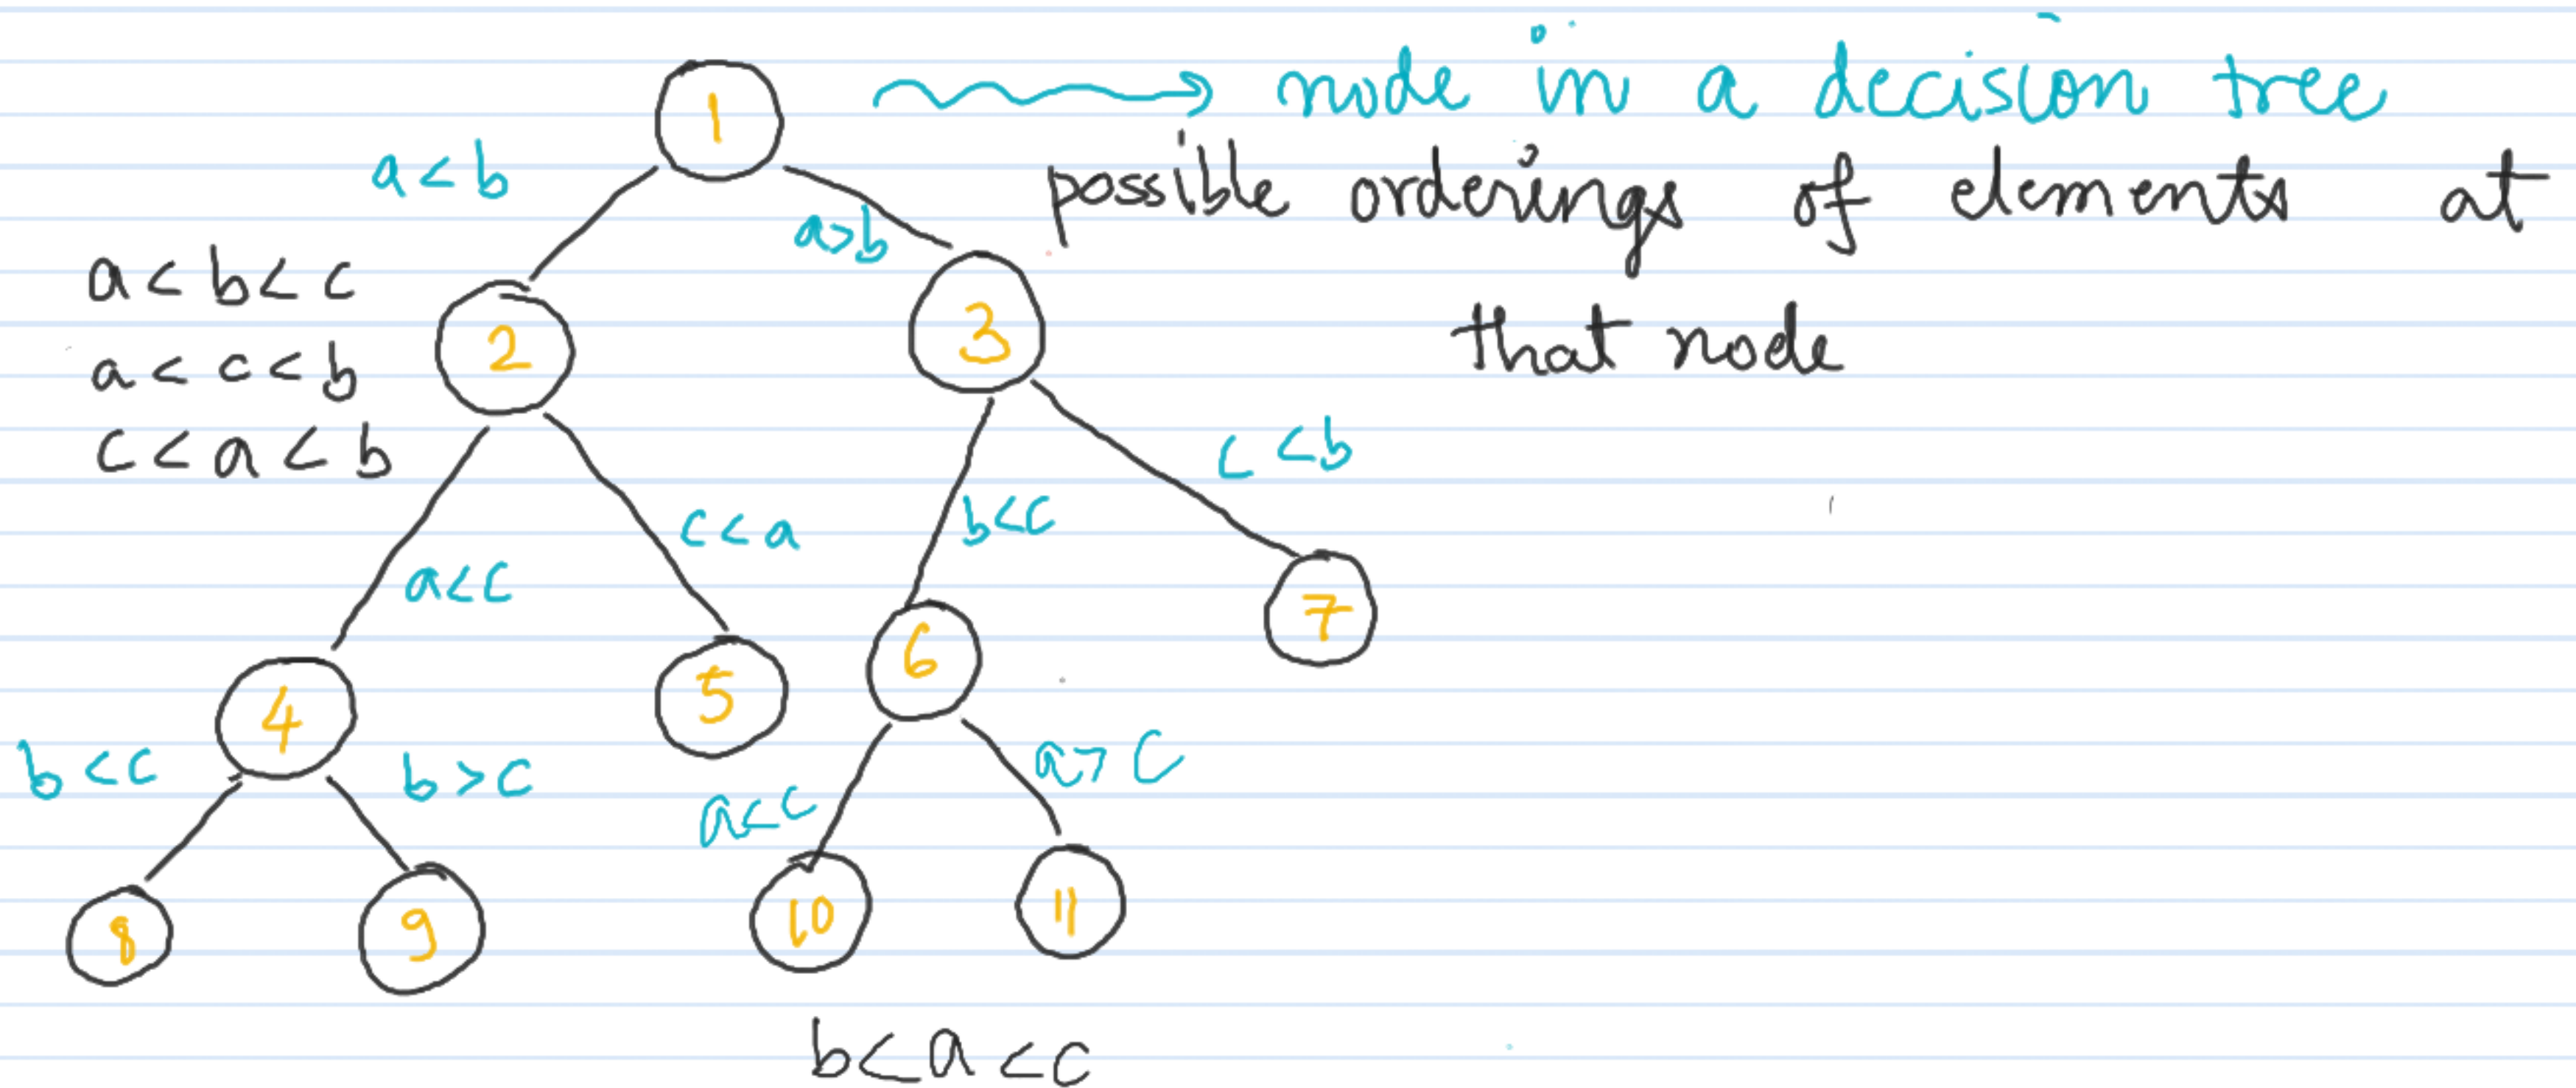 1 node in a decision tree
a < b a > b possible orderings of elements at
a < b < c
2 3 that node
a < c < b
c < a < b c < b
a < c c < a b < c
4 5 6 7
b < c b > c a < c a > c
8 9 10 11
b < a < c